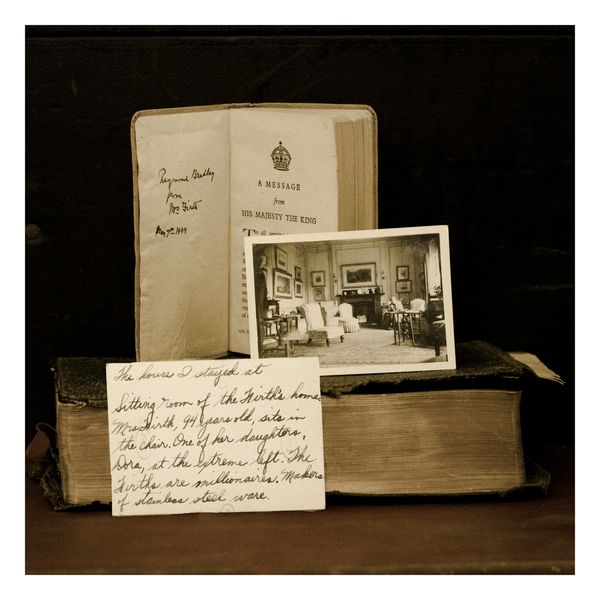 Raymond Bradley
from
Mrs. Firth
May 7th 1944
A MESSAGE
from
HIS MAJESTY THE KING
The house I stayed at
Sitting room of the Firth's home.
Mrs. Firth, 94 years old, sits in
the chair. One of her daughters,
Dora, at the extreme left. The
Firths are millionaires. Makers
of stainless steel ware.